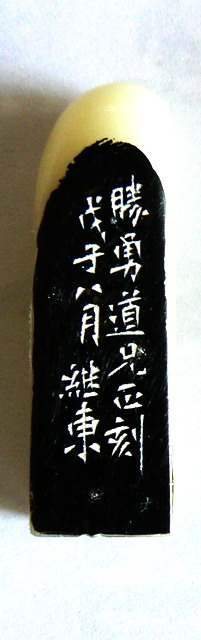 勝勇道兄正刻
戊子八月 継東